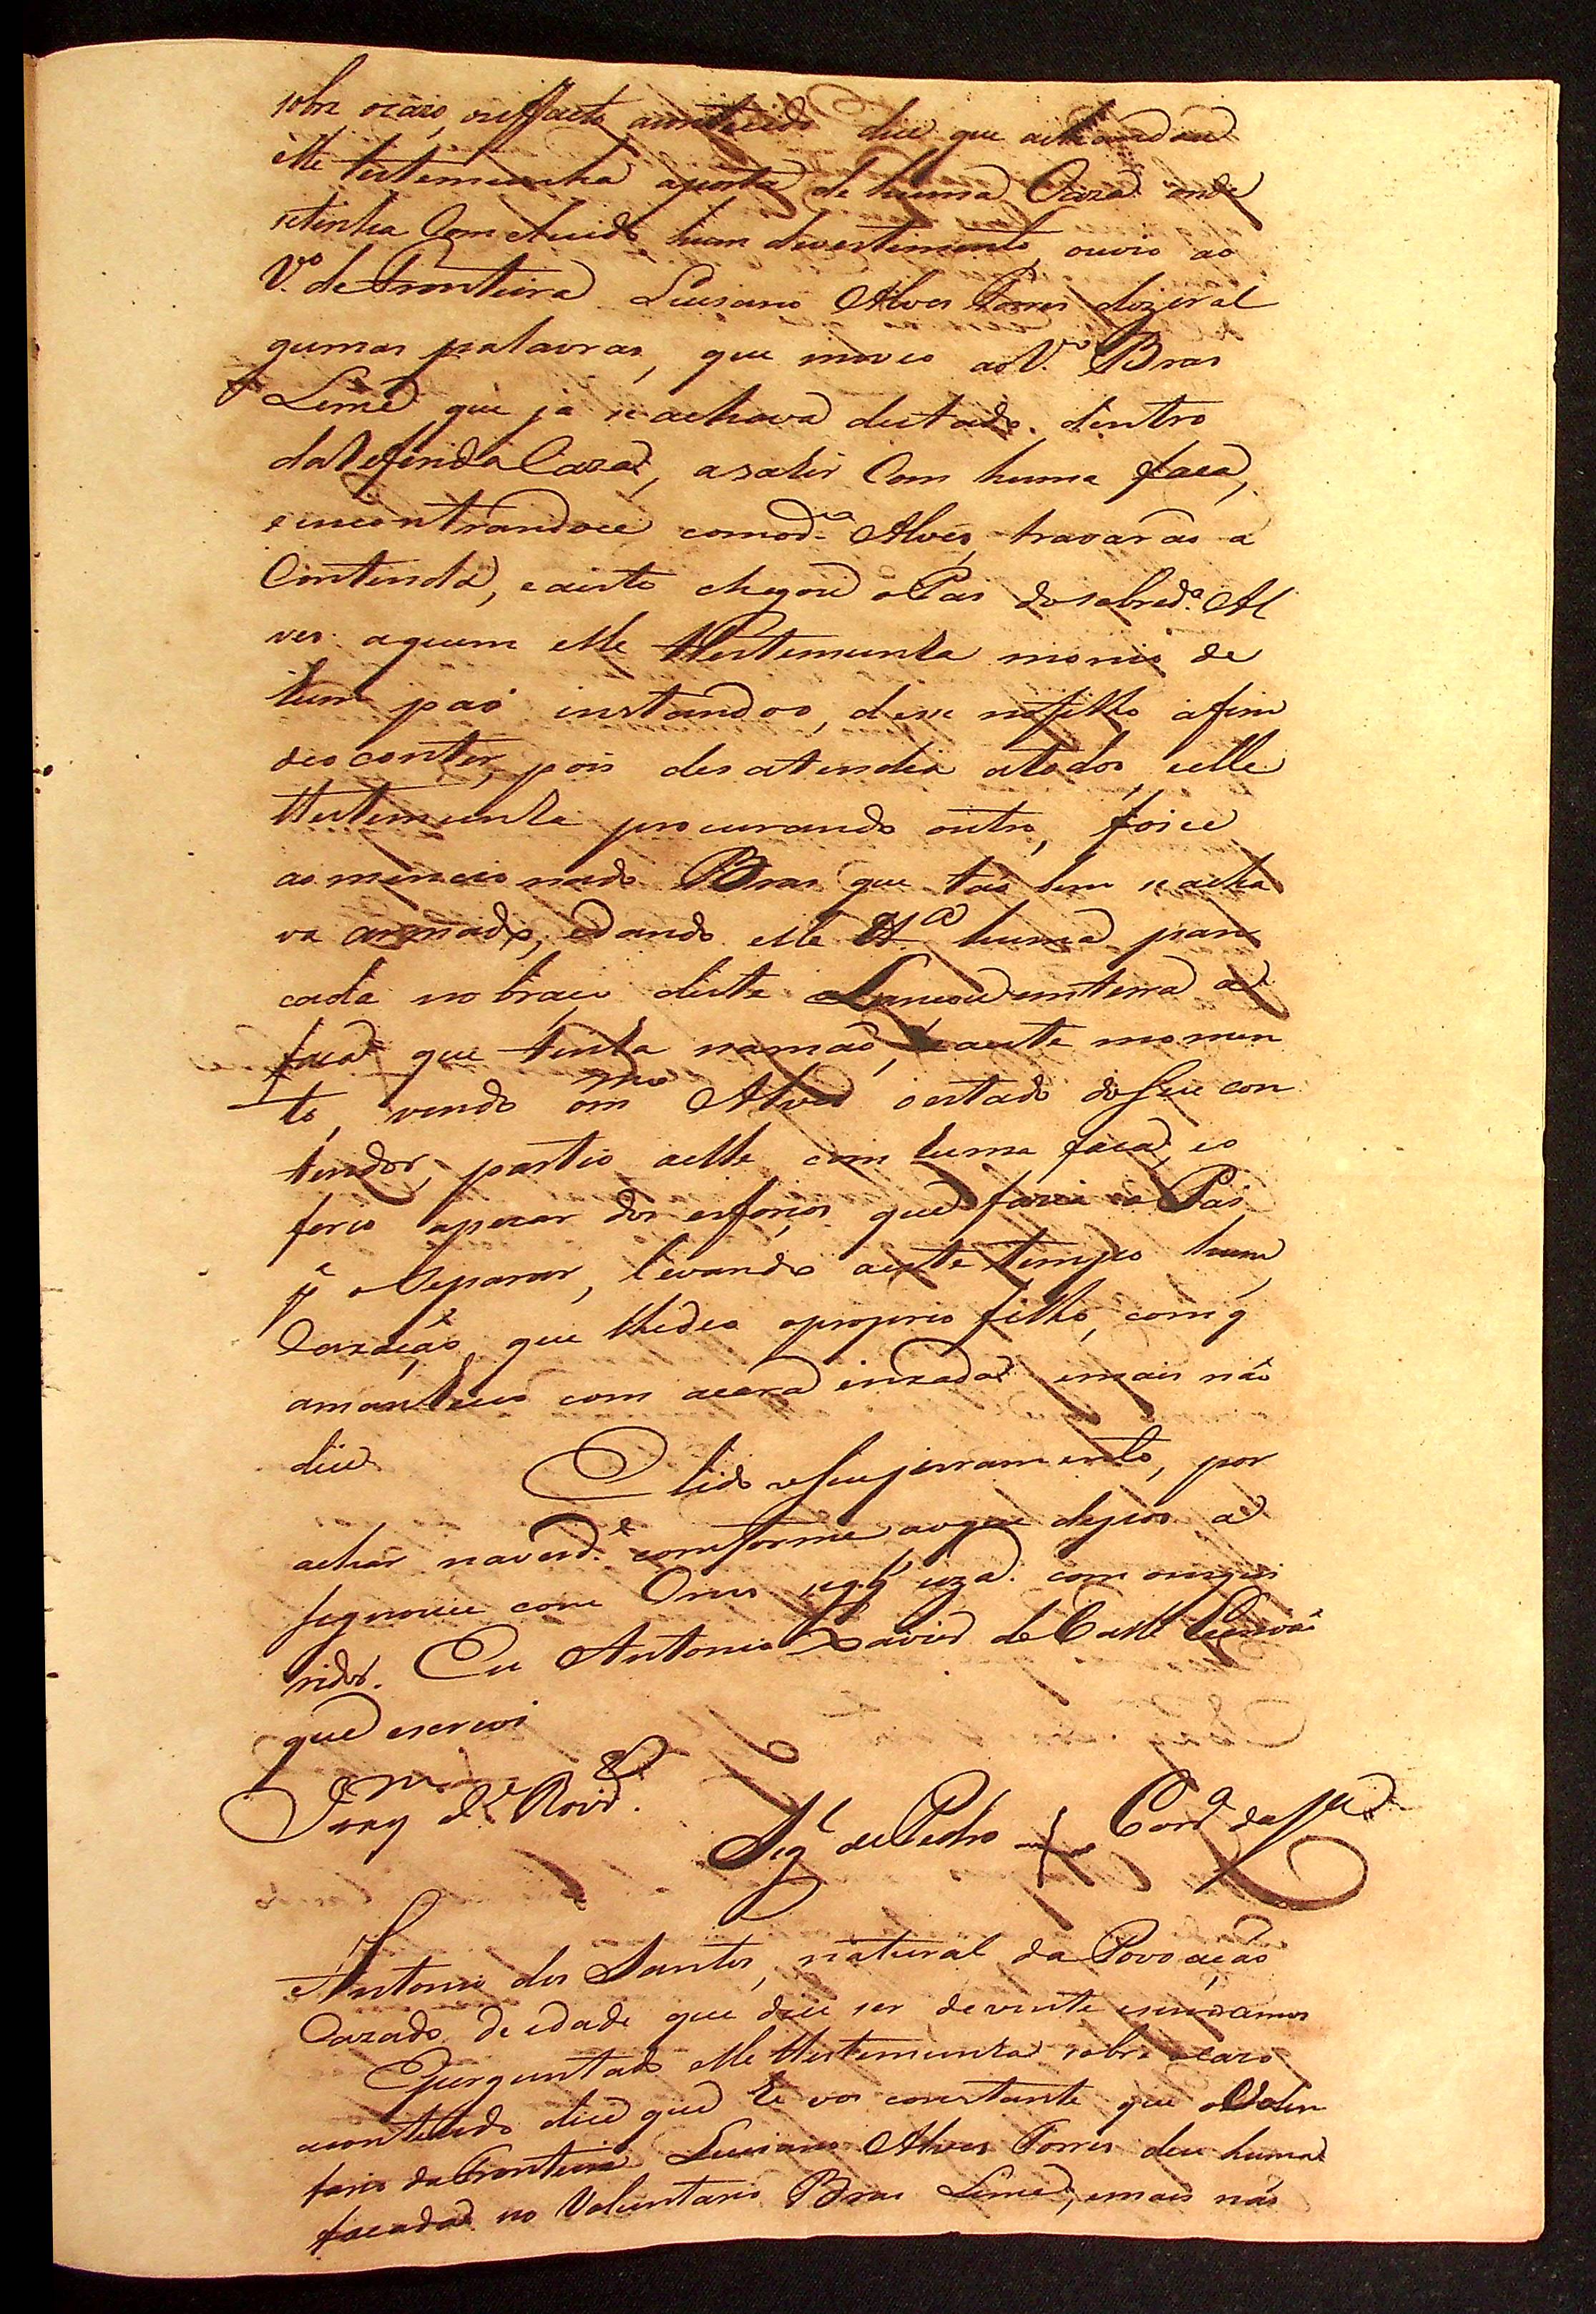 sobre ocazo, eneffacto acontecido dice que achandoce
elle testemunha aporta de huma Caza onde
setinha Concluido hum devertimento, ouvio ao
V.º de Fronteira Luciano Alves Torres dizer al
gumas palavras, que moveo aoV.ro Bras
Leme que ja se achava deitado dentro
daReferida Caza, asahir Com huma faca,
eincontrandoce comod.ª Alves, travaraõ a
Contenda, eaiste chegou oPai dosobred.º Al
ves aquem elle thestemunha monio de
hum páo instandoo, dese nofilho afim
deo conter, pois desatendia atodos, eelle
thestemunha procurando outro, foice
ao mencionado Bras que taõ bem seacha
va armado, edando elle tt.ª huma pan
cada nobraço deste Lancou emterra a
faca que tinha namaõ, eaeste momen
to, vendo om.mo Alves oestado doSeu con
tendor, partio aelle com huma faca, eo
ferio apezar dos esforços que fazia o Pai
p.ª oSeparar, levando aeste tempo hum
Cordaõ, que lhedeo oproprio filho, comq
amanheceo com acara inxada emais naõ
dice. Elido oSeujuramento, por
achar naverd.e comforme aoque depos a
Signouce com Crus
ridor. Eu Antonio Xavier de Escrivaõ
que escrevi
Sig.l de Pedro + Card.º da S.ª
Antonio dos Santos, natural da Povoaçaõ
Cazado, de edade que dice ser de vinte annos
Epurguntado elle thestemunha sobre ocazo
acontecido dice que he vos constante que oVolun
tario da Fronteira Luciano Alves Torres deu huma
facada no Voluntario Bras Leme, emais naõ